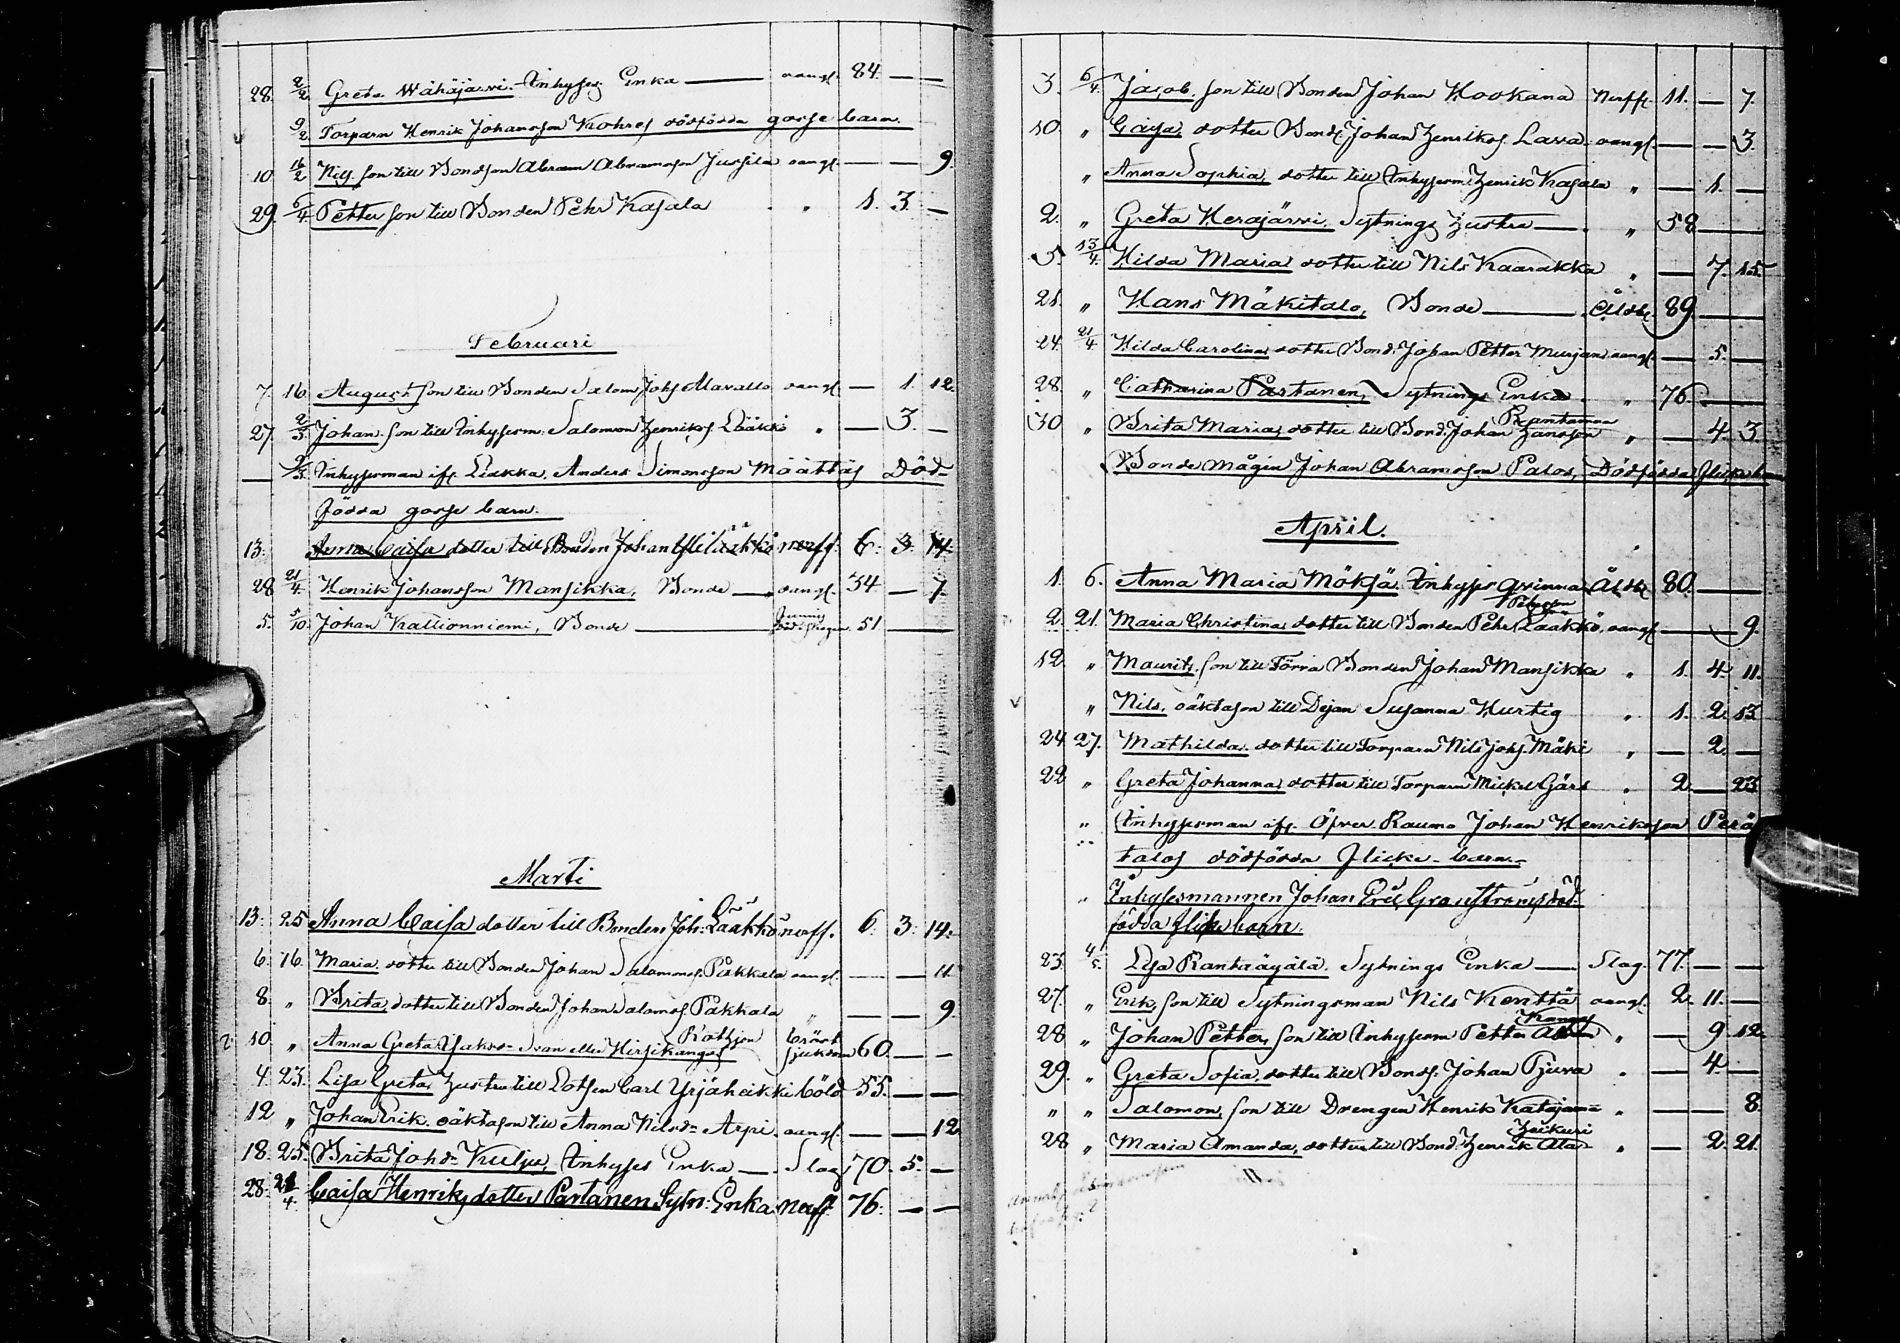 28. 2/2 Greta Wähäjärvi Inhyses Enka — vangl. 84 — —
9/2 Torparn Henrik Johansson Kohres dödfödda gosse barn.
10 16/2 Nils. son till Bondson Abram Abramsson Jussila vangl. — — 9.
29. 6/4. Petter son till Bonden Pehr Kasala " 1. 3. —
Februari
7. 16. August son till Bonden Salom. Johs Mavallo vangl. — 1. 12.
27. 2/3. Johan. son till Inhyserm. Salomon Henriks. Lääkkö " — 3. —
— 9/3 Inhysesman ifr. Liakka. Anders Simonsson Määttäs Död-
födda gosse barn.
13. Anna Caisa dotter till Bonden Johan Lääkkö nerff. 6. 3. 14.
28 21/4. Henrik Johansson Mansikka, Bonde — vangl. 34 — 7.
5. 5/10. Johan Kallionniemi, Bonde — 51 —
Marti
13. 25 Anna Caisa dotter till Bonden Joh. Lääkkö nerff. 6. 3. 14.
6. 16. Maria dotter till Bonden Johan Salomons. Pakkala vangl. — — 11.
8. " Brita, dotter till Bonden Johan Salomos. Pakkala " — — 9.
10. " Anna Greta Jakobs- eller Hirsikangas bröst sjukdom 60. — —
4. 23. Lisa Greta, Hustru till Lotsen Carl Yrjäheikki 55. — —
12 " Johan Erik. oäkta son till Anna Nilsd:r Arpi. vangl. — — 12
18. 25. Brita Johd:r Kulju, Inhyses Enka — Slag 70. 5. —
28. 21/4. Caisa Henriksdotter Partanen Sytn. Enka. nerff. 76. — —
3. 6/4. Jacob. son till Bonden Johan Hookana Nerff. 11. — 7.
10. " Caisa, dotter Bonds. Johan Henriks. Lava. vangl. — — 3.
" Anna Sophia, dotter till Inhyserm. Henrik Kasala " — 1. —
2. " Greta Herajärvi. Sytnings Hustru — " 58 —
5. 13/4. Hilda Maria, dotter till Nils Kaarakka " — 7. 15.
21. " Hans Mäkitalo, Bonde — Åldd. 89. —
24. 21/4 Hilda Carolina, dotter Bond. Johan Petter Murjan vangl. — 5. —
28. " Catharina Partanen, Sytnings Enka. " 76. —
Rantamaa
30 " Brita Maria, dotter till Bond. Johan Hansson " — 4. 3.
Bonde mågen Johan Abramsson Palos, Dödfödda flicke barn
April.
1. 6. Anna Maria Möksä. Inhyses qvinna Åldd. 80. —
2. 21. Maria Christina, dotter till Bonden Pehr Laakkö. vangl. — — 9.
12. " Maurits, son till Förra Bonden Johan Mansikka " 1. 4. 11.
" Nils, oäkta son till Pigan Susanna Hurtig " 1. 2. 13.
24. 27. Mathilda. dotter till Torparn Nils Johs. Mäki " — 2. —
22 " Greta Johanna, dotter till Torparn Mickel Gärs " 2. — 23
" Inhysesman ifr. Öfver Raumo Johan Henriksson Perä
talos dödfödda flicke-barn.
" Inhysesmannen Johan Eric Granströms död-
födda flicke barn.
23. 4/5. Lisa Rantaäyälä. Sytnings Enka — Slag. 77. — —
27. " Erik, son till Sytningsman Nils Kenttä vangl. 2. 11. —
Kangas
28 " Johan Petter, son till Inhyserm Petter " — 9. 12.
29. " Greta Sofia, dotter till Bonds. Johan Pjuva " — 4. —
" " Salomon, son till Drengen Henrik Katajama " — — 8.
28 " Maria Amanda, dotter till Bond. Henrik Alas " — 2. 21.